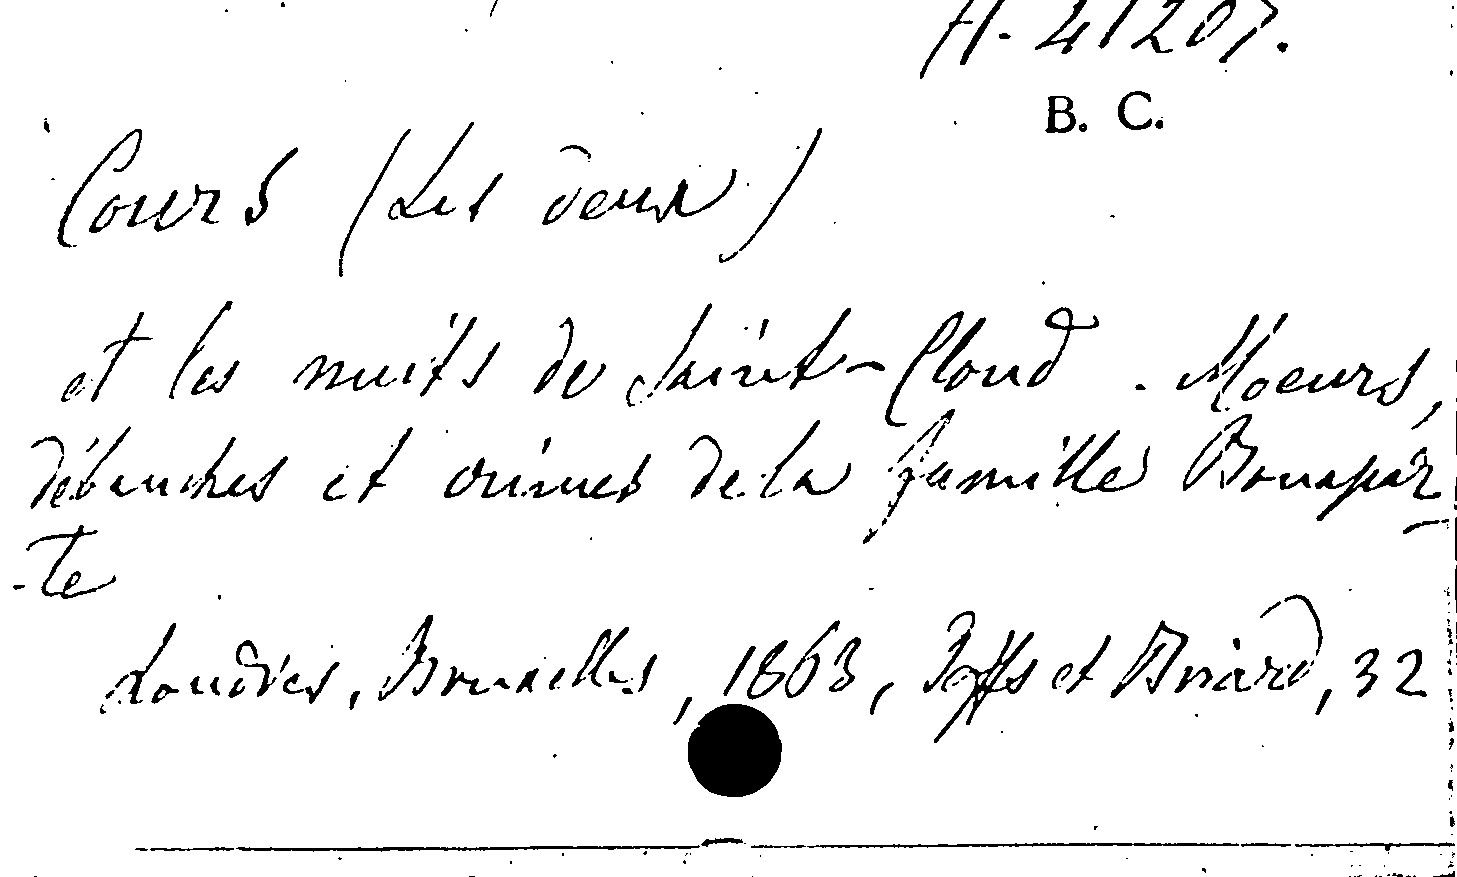 H. 41207.
B. C.
Cours (Les deux)
et les nuits de Saint-Cloud. Moeurs,
débauches et crimes de la famille Bonapar
-te
Londres, Bruxelles, 1863, Joffs et Briard, 32